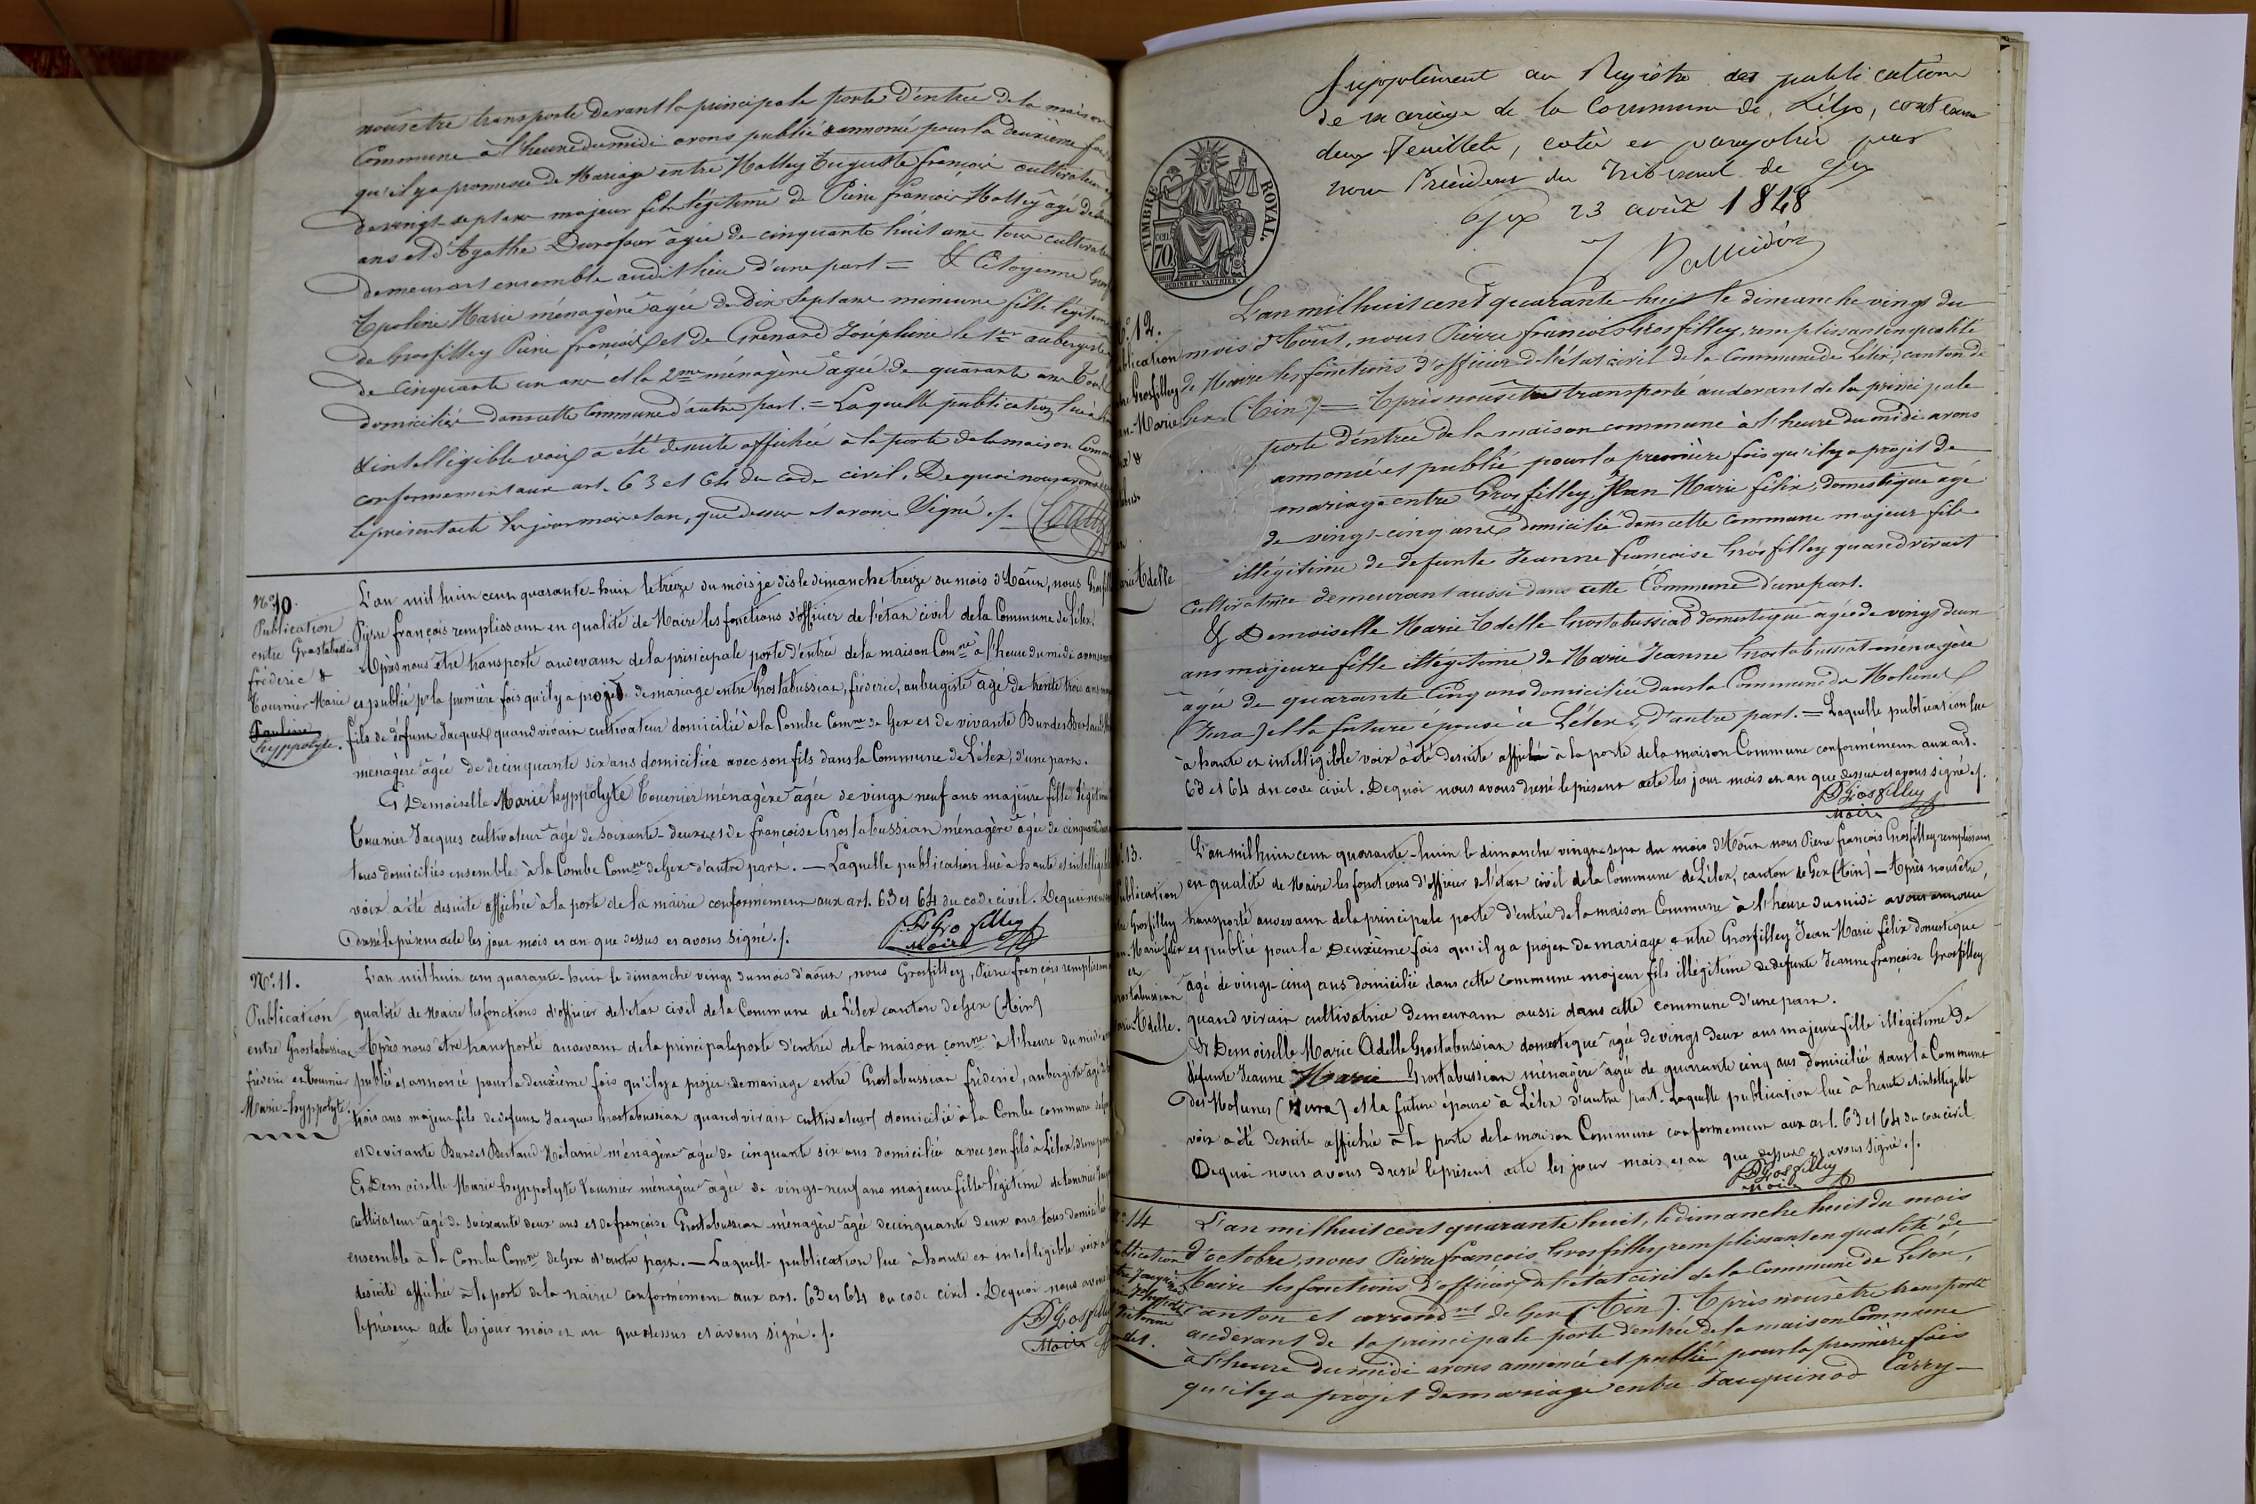 nous être transporté devant la principale porte d'entrée de la maison
Commune à l'heure du midi avons publié & annoncé pour la deuxième fois
qu'il y a promesse de Mariage entre Molley Auguste françois cultivateur
de vingt-sept ans majeur fils légitime de Pierre françois Molley âgé de
ans et d'Agathe Durafour âgée de cinquante huit ans tous cultivateurs
demeurant ensemble audit lieu d'une part = & Citoyenne Grosf
Apoline Marie ménagère âgée de Dix Sept ans mineure fille légitime
de Grosfilley Pierre françois et de Grenard Joséphine le 1er aubergiste
de cinquante un ans et la 2me ménagère âgée de quarante ans tous
domiciliés dans cette Commune d'autre part. = Laquelle publication lue à
& intelligible voix a été de suite affichée à la porte de la maison Comm
conformément aux art. 63 et 64 du code civil. De quoi nous avons
le présent acte les jour mois et an, que dessus et avons Signé ./.
No. 10.
Publication
entre Grostabussiat
fréderic &
Tournier Marie
Pauline
hyppolyte.
L'an mil huit cent quarante-huit le treize du mois je dis le dimanche treize du mois d'Août, nous Grosfil
Pierre françois remplissant en qualité de Maire les fonctions d'officier de l'état civil de la Commune de Lélex.
Après nous être transporté au devant de la principale porte d'entrée de la maison Comne à l'heure du midi avons
et publié pr la première fois qu'il y a projet de mariage entre Grostabussiat, fréderic, aubergiste âgé de trente trois ans
fils de défunt Jacques quand vivait cultivateur domicilié à la Combe Comne de Gex et de vivante Bundes Bertand
ménagère âgée de de cinquante six ans domiciliée avec son fils dans la Commune de Lélex, d'une part.
Et Demoiselle Marie hyppolyte Tournier ménagère âgée de vingt neuf ans majeure fille légitime
Tournier Jacques cultivateur âgé de soixante-deux et de françoise Grostabussiat ménagère âgée de cinquante
tous domiciliés ensemble à la Combe Comne de Gex d'autre part. — Laquelle publication lue à haute et intelligible
voix a été de suite affichée à la porte de la mairie conformément aux art. 63 et 64 du code civil. De quoi nous
dressé le présent acte les jour mois et an que dessus et avons signé ./.
P Grosfilley
Maire
No. 11.
Publication
entre Grostabussiat
fréderic et Tournier
Marie-hyppolyte.
L'an mil huit cent quarante-huit le dimanche vingt du mois d'août, nous Grosfilley, Pierre françois remplissant
qualité de Maire les fonctions d'officier de l'état civil de la Commune de Lélex canton de Gex (Ain)
Après nous être transporté au devant de la principale porte d'entrée de la maison comne à l'heure du midi
publié et annoncé pour la deuxième fois qu'il y a projet de mariage entre Grostabussiat fréderic, aubergiste âgé
trois ans majeur fils de défunt Jacques Grostabussiat quand vivait cultivateur domicilié à la Combe commune de
et de vivante Bundes Bertand Mélanie ménagère âgée de cinquante six ans domiciliée avec son fils à Lélex, d'une part
Et Demoiselle Marie hyppolyte Tournier ménagère âgée de vingt-neuf ans majeure fille légitime de Tournier
cultivateur âgé de soixante deux ans et de françoise Grostabussiat ménagère âgée de cinquante deux ans tous domiciliés
ensemble à la Combe Comne de Gex d'autre part. — Laquelle publication lue à haute et intelligible voix a
de suite affichée à la porte de la mairie conformément aux art. 63 et 64 du code civil. De quoi nous avons
le présent acte les jour mois et an que dessus et avons signé ./.
P Grosfilley
Maire
Supplément au Registre des publications
de mariage de la Commune de Lélex, contenant
deux feuillets, coté et paraphé par
nous Président du Tribunal de Gex
Gex 23 août 1848
TIMBRE ROYAL.
70
No. 12.
Publication
Grosfilley
Marie
Adelle
L'an mil huit cent quarante-huit le dimanche vingt du
mois d'Août, nous Pierre francois Grosfilley, remplissant en qualité
de Maire les fonctions d'officier de l'état civil de la Commune de Lélex, canton de
Gex (Ain) = Après nous être transporté au devant de la principale
porte d'entrée de la maison commune à l'heure du midi avons
annoncé et publié pour la première fois qu'il y a projet de
mariage entre Grosfilley, Jean Marie félix, domestique âgé
de vingt-cinq ans domicilié dans cette Commune majeur fils
illégitime de défunte Jeanne françoise Grosfilley quand vivait
Cultivatrice demeurant aussi dans cette Commune d'une part.
& Demoiselle Marie Adelle Grostabussiat domestique âgée de vingt deux
ans majeure fille illégitime de Marie Jeanne Grostabussiat ménagère
âgée de quarante Cinq ans domiciliée dans la Commune de Molunes
(Jura) et la future épouse à Lélex, d'autre part. = Laquelle publication lue
à haute et intelligible voix a été de suite affichée à la porte de la maison Commune conformément aux art.
63 et 64 du code civil. De quoi nous avons dressé le présent acte les jour mois et an que dessus et avons signé ./.
P Grosfilley
Maire
13.
Publication
Grosfilley
Marie félix
et
Grostabussiat
Marie Adelle.
L'an mil huit cent quarante-huit le dimanche vingt-sept du mois d'Août nous Pierre françois Grosfilley remplissant
en qualité de Maire les fonctions d'officier de l'état civil de la Commune de Lélex, canton de Gex (Ain) — Après nous être,
transporté au devant de la principale porte d'entrée de la maison Commune à l'heure du midi avons annoncé
et publié pour la Deuxième fois qu'il y a projet de mariage entre Grosfilley Jean Marie félix domestique
âgé de vingt-cinq ans domicilié dans cette commune majeur fils illégitime de défunte Jeanne françoise Grosfilley
quand vivait cultivatrice demeurant aussi dans cette commune d'une part.
Et Demoiselle Marie Adelle Grostabussiat domestique âgée de vingt deux ans majeure fille illégitime de
défunte Jeanne Marie Grostabussiat ménagère âgée de quarante cinq ans domiciliée dans la Commune
des Molunes (Jura) et la future épouse à Lélex d'autre part. Laquelle publication lue à haute et intelligible
voix a été de suite affichée à la porte de la maison Commune conformément aux art. 63 et 64 du code civil
De quoi nous avons dressé le présent acte les jour mois et an que dessus et avons signé ./.
P Grosfilley
Maire
14
Publication
L'an mil huit cent quarante huit, le dimanche huit du mois
d'octobre, nous Pierre françois Grosfilley remplissant en qualité de
Maire les fonctions d'officier de l'état civil de la Commune de Lélex,
canton et arrondnt de Gex (Ain). Après nous être transporté
au devant de la principale porte d'entrée de la maison Commune
à l'heure du midi avons annoncé et publié pour la première fois
qu'il y a projet de mariage entre Jacquinod Carry—